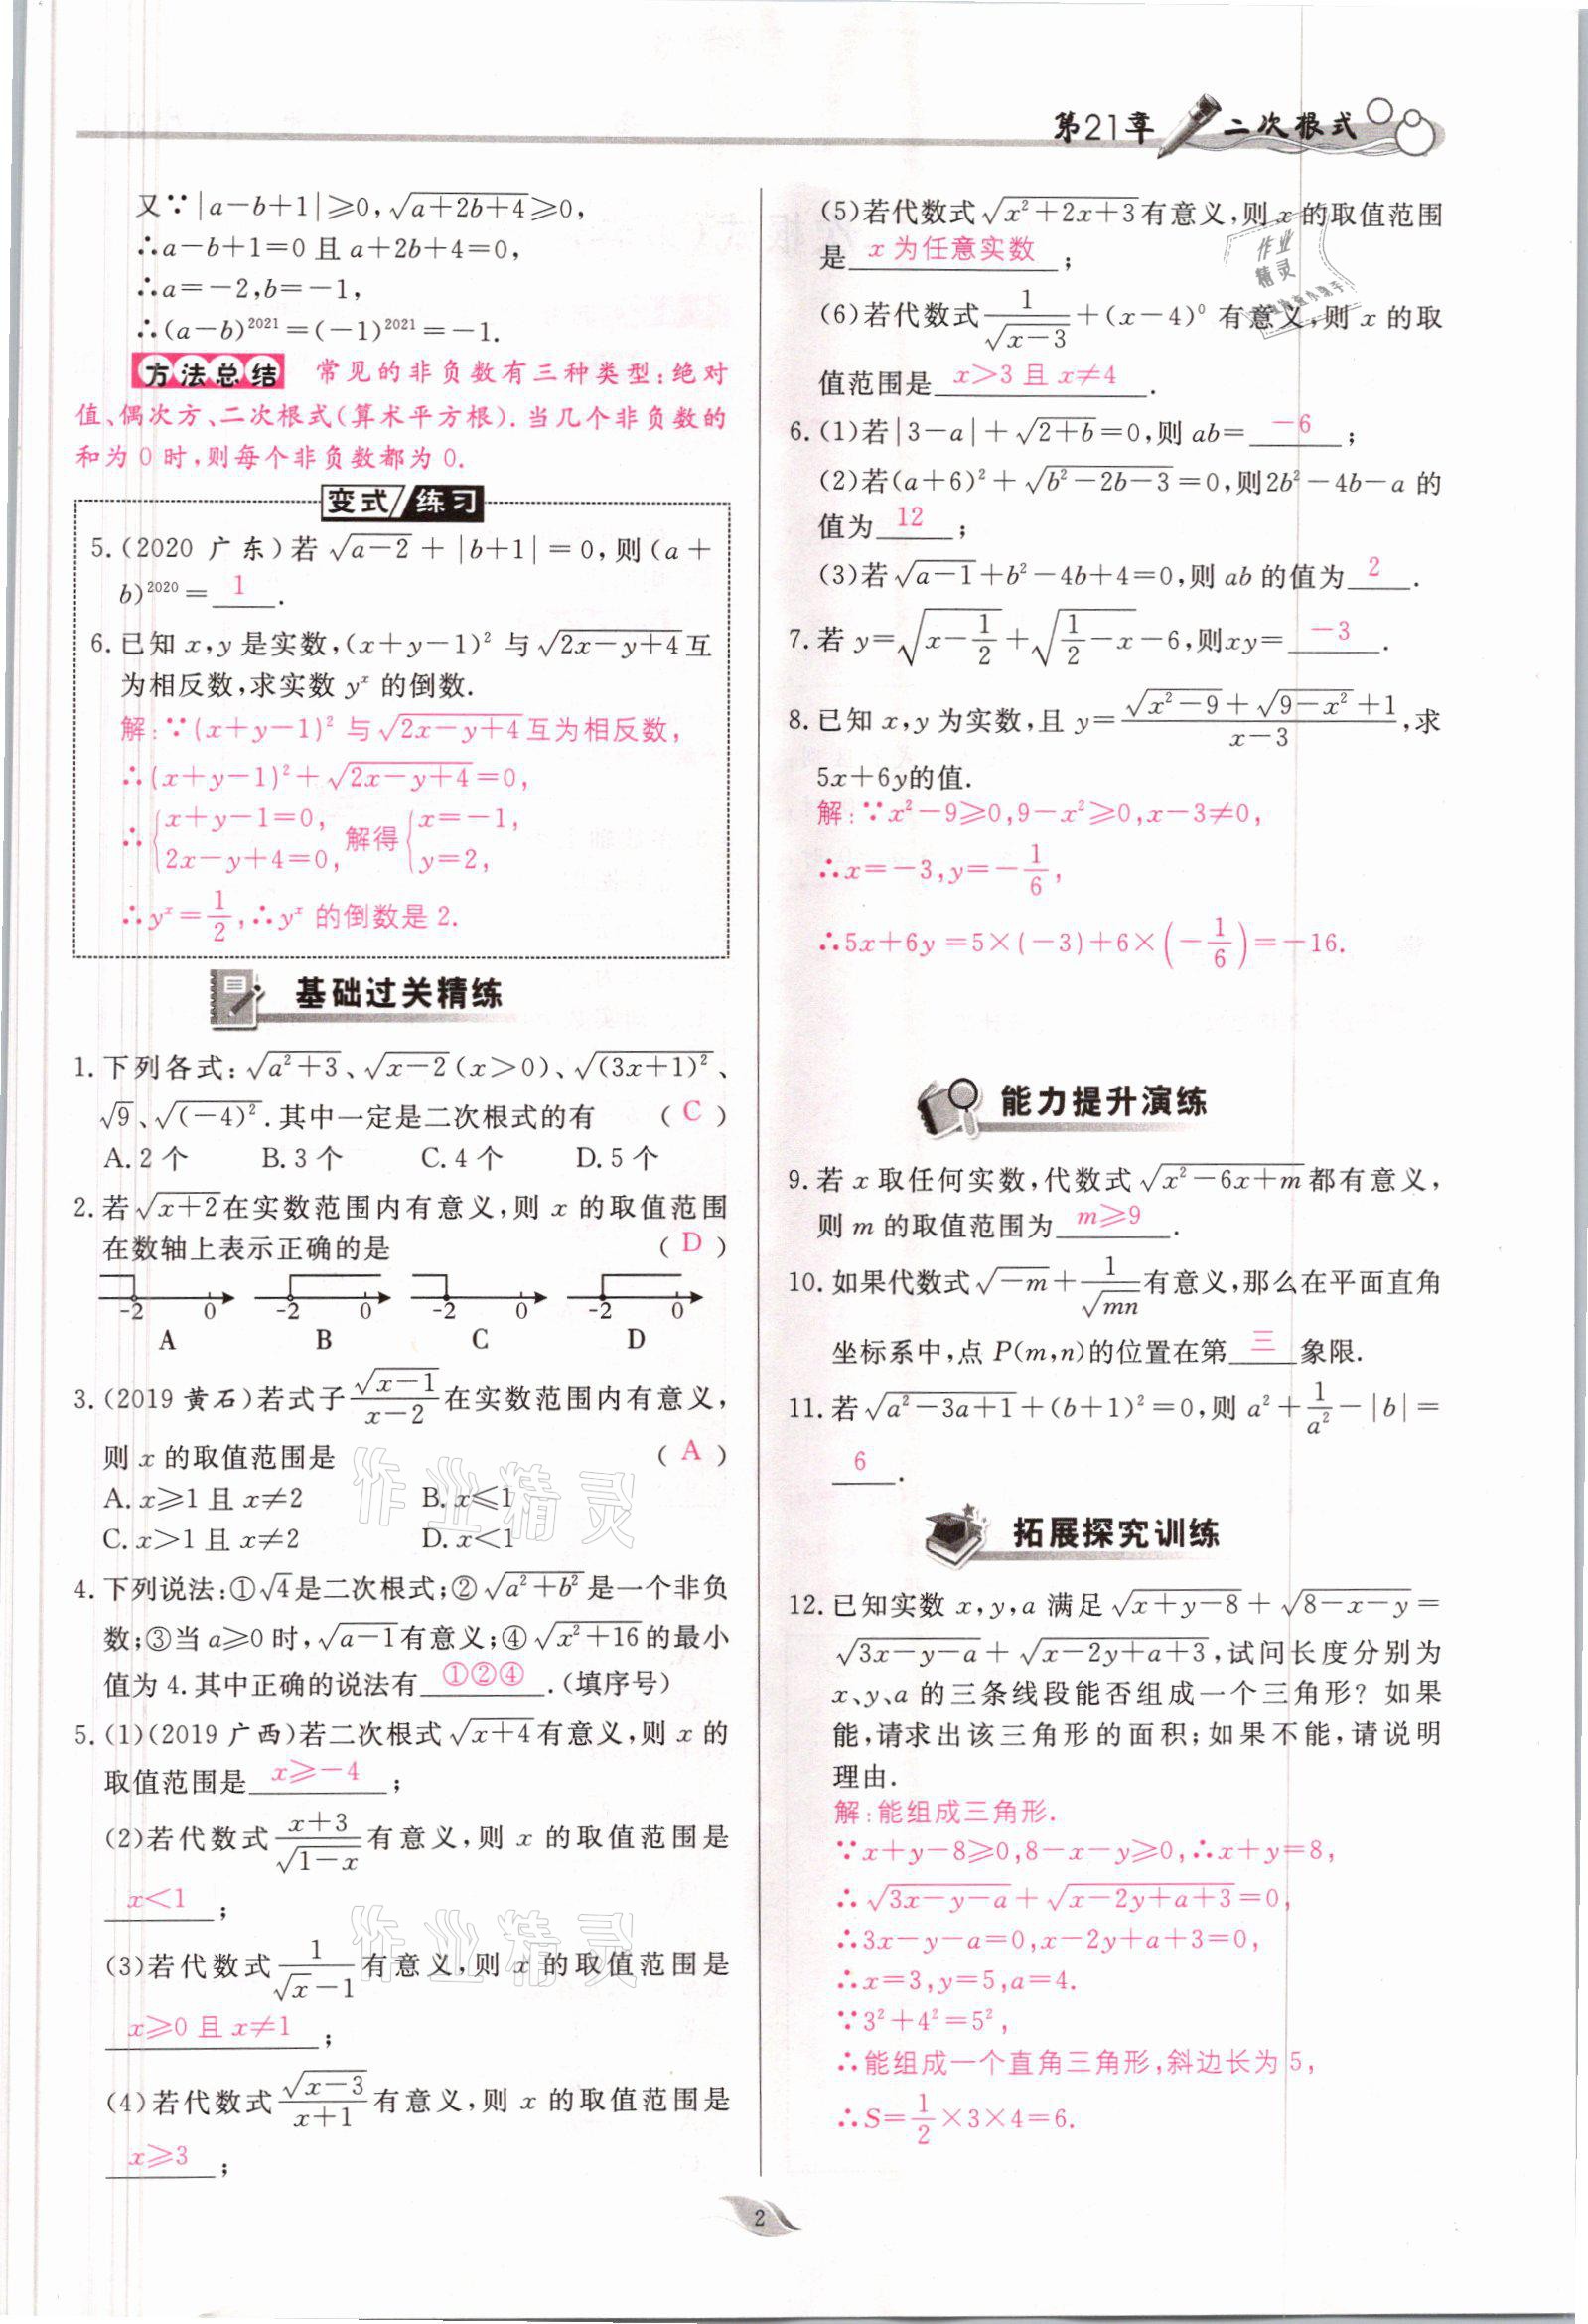 第21章 二次根式
又∵|a-b+1|≥0,√(a+2b+4)≥0,
∴a-b+1=0 且 a+2b+4=0,
∴a=-2,b=-1,
∴(a-b)²⁰²¹=(-1)²⁰²¹=-1.
方法总结 常见的非负数有三种类型:绝对
值、偶次方、二次根式(算术平方根).当几个非负数的
和为0时,则每个非负数都为0.
变式/练习
5.(2020 广东)若 √(a-2)+|b+1|=0,则(a+
b)²⁰²⁰= 1 .
6.已知 x,y 是实数,(x+y-1)² 与 √(2x-y+4) 互
为相反数,求实数 yˣ 的倒数.
解:∵(x+y-1)² 与 √(2x-y+4) 互为相反数,
∴(x+y-1)²+√(2x-y+4)=0,
∴{x+y-1=0, 2x-y+4=0, 解得{x=-1, y=2,
∴yˣ=1/2,∴yˣ 的倒数是 2.
基础过关精练
1.下列各式:√(a²+3)、√(x-2)(x>0)、√((3x+1)²)、
√9、√((-4)²).其中一定是二次根式的有 ( C )
A.2个 B.3个 C.4个 D.5个
2.若√(x+2)在实数范围内有意义,则 x 的取值范围
在数轴上表示正确的是 ( D )
-2 0 -2 0 -2 0 -2 0
A B C D
3.(2019 黄石)若式子 √(x-1)/(x-2) 在实数范围内有意义,
则 x 的取值范围是 ( A )
A.x≥1 且 x≠2 B.x≤1
C.x>1 且 x≠2 D.x<1
4.下列说法:①√4是二次根式;②√(a²+b²)是一个非负
数;③当 a≥0 时,√(a-1)有意义;④√(x²+16)的最小
值为 4.其中正确的说法有 ①②④ .(填序号)
5.(1)(2019 广西)若二次根式√(x+4)有意义,则 x 的
取值范围是 x≥-4 ;
(2)若代数式 (x+3)/√(1-x) 有意义,则 x 的取值范围是
x<1 ;
(3)若代数式 1/(√x-1) 有意义,则 x 的取值范围是
x≥0 且 x≠1 ;
(4)若代数式 √(x-3)/(x+1) 有意义,则 x 的取值范围是
x≥3 ;
(5)若代数式√(x²+2x+3)有意义,则 x 的取值范围
是 x 为任意实数 ;
(6)若代数式 1/√(x-3)+(x-4)⁰ 有意义,则 x 的取
值范围是 x>3 且 x≠4 .
6.(1)若|3-a|+√(2+b)=0,则 ab= -6 ;
(2)若(a+6)²+√(b²-2b-3)=0,则2b²-4b-a 的
值为 12 ;
(3)若√(a-1)+b²-4b+4=0,则 ab 的值为 2 .
7.若 y=√(x-1/2)+√(1/2-x)-6,则xy= -3 .
8.已知 x,y 为实数,且 y=(√(x²-9)+√(9-x²)+1)/(x-3),求
5x+6y的值.
解:∵x²-9≥0,9-x²≥0,x-3≠0,
∴x=-3,y=-1/6,
∴5x+6y=5×(-3)+6×(-1/6)=-16.
能力提升演练
9.若 x 取任何实数,代数式√(x²-6x+m)都有意义,
则 m 的取值范围为 m≥9 .
10.如果代数式√(-m)+1/√(mn)有意义,那么在平面直角
坐标系中,点 P(m,n)的位置在第 三 象限.
11.若√(a²-3a+1)+(b+1)²=0,则 a²+1/a²-|b|=
6 .
拓展探究训练
12.已知实数 x,y,a 满足√(x+y-8)+√(8-x-y)=
√(3x-y-a)+√(x-2y+a+3),试问长度分别为
x、y、a 的三条线段能否组成一个三角形? 如果
能,请求出该三角形的面积;如果不能,请说明
理由.
解:能组成三角形.
∵x+y-8≥0,8-x-y≥0,∴x+y=8,
∴√(3x-y-a)+√(x-2y+a+3)=0,
∴3x-y-a=0,x-2y+a+3=0,
∴x=3,y=5,a=4.
∵3²+4²=5²,
∴能组成一个直角三角形,斜边长为 5,
∴S=1/2×3×4=6.
2
作业精灵
作业精灵
作业
精灵